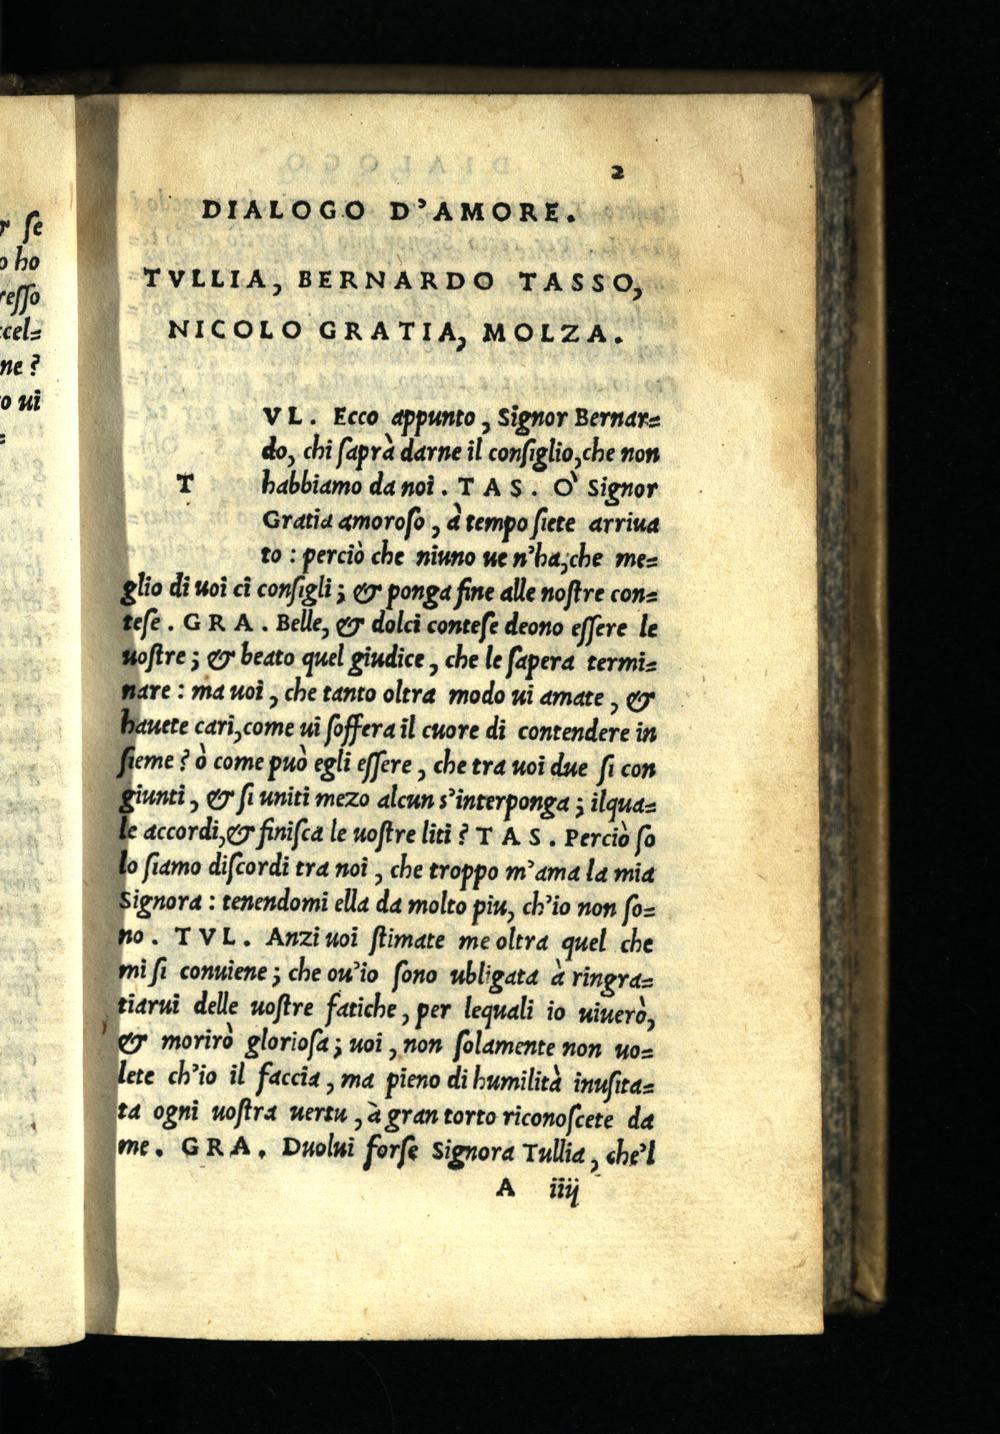 2
DIALOGO D'AMORE.
TVLLIA, BERNARDO TASSO,
NICOLO GRATIA, MOLZA.
VL. Ecco appunto, Signor Bernar=
do, chi ſaprà darne il conſiglio,che non
T habbiamo da noi. TAS. Ò Signor
Gratia amoroſo, à tempo ſiete arriua
to : perciò che niuno ue n'ha,che me=
glio di uoi ci conſigli; & ponga fine alle noſtre con=
teſe. GRA. Belle, & dolci conteſe deono eſſere le
uoſtre; & beato quel giudice, che le ſapera termi=
nare : ma uoi, che tanto oltra modo ui amate, &
hauete cari,come ui ſoffera il cuore di contendere in
ſieme? ò come può egli eſſere, che tra uoi due ſi con
giunti, & ſi uniti mezo alcun s'interponga; ilqua=
le accordi,& finiſca le uoſtre liti? TAS. Perciò ſo
lo ſiamo diſcordi tra noi, che troppo m'ama la mia
Signora : tenendomi ella da molto piu, ch'io non ſo=
no. TVL. Anzi uoi ſtimate me oltra quel che
mi ſi conuiene; che ou'io ſono ubligata à ringra=
tiarui delle uoſtre fatiche, per lequali io uiuerò,
& morirò glorioſa; uoi, non ſolamente non uo=
lete ch'io il faccia, ma pieno di humilità inuſita=
ta ogni uoſtra uertu, à gran torto riconoſcete da
me. GRA. Duolui forſe Signora Tullia, che'l
A iiij
ſe
o ho
reſſo
cel=
ne?
o ui